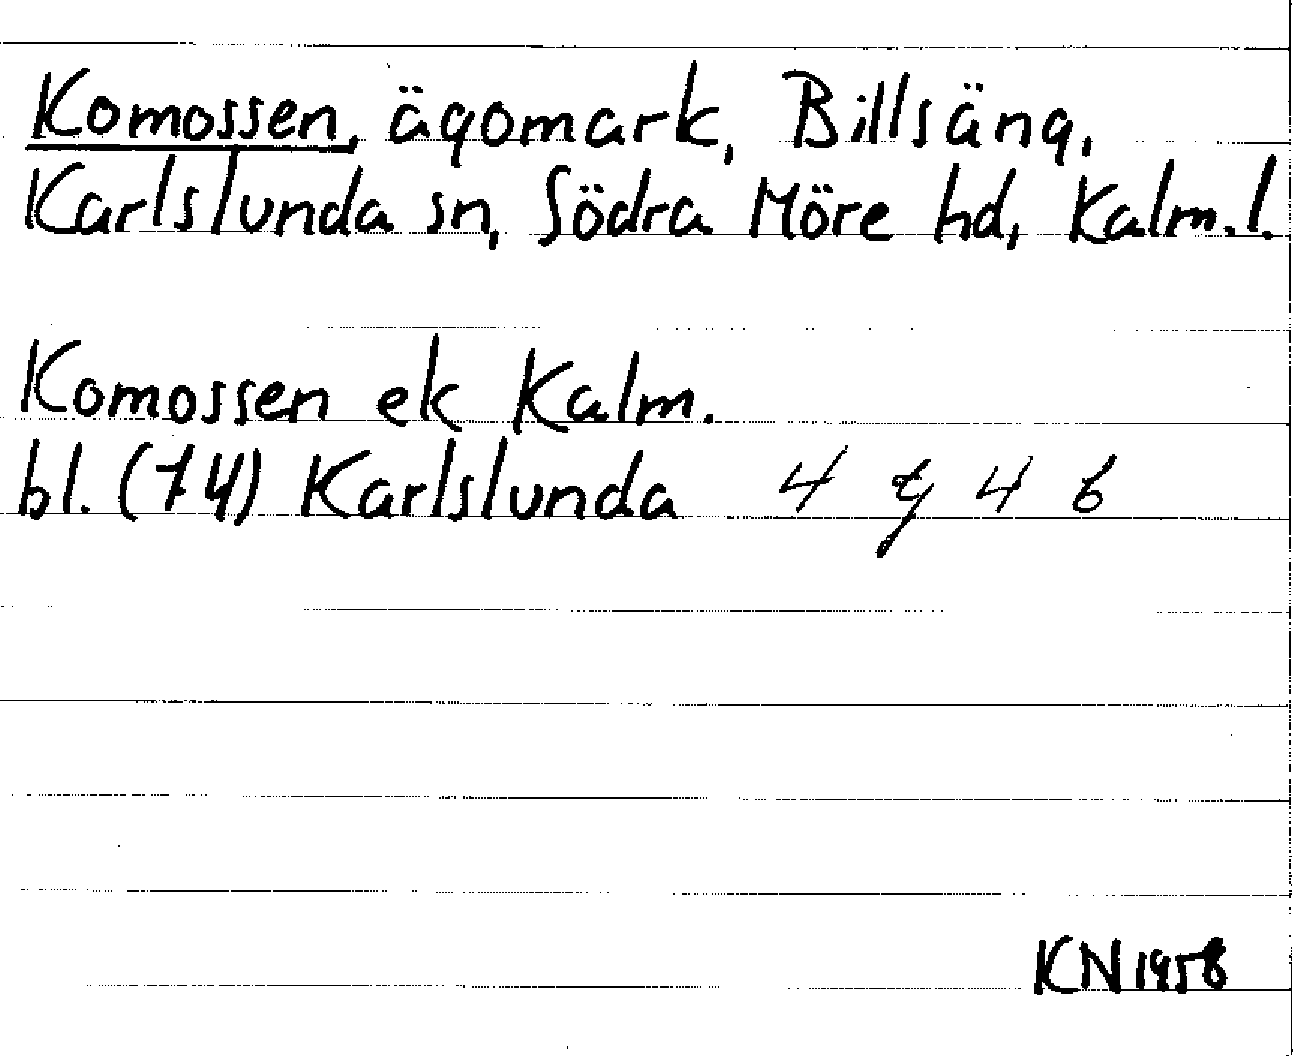 Komossen, ägomark, Billsäng,
Karlslunda sn, Södra Möre hd, Kalm.l.
Komossen ek Kalm.
bl. (74) Karlslunda 4 g 4 b
KN 1958